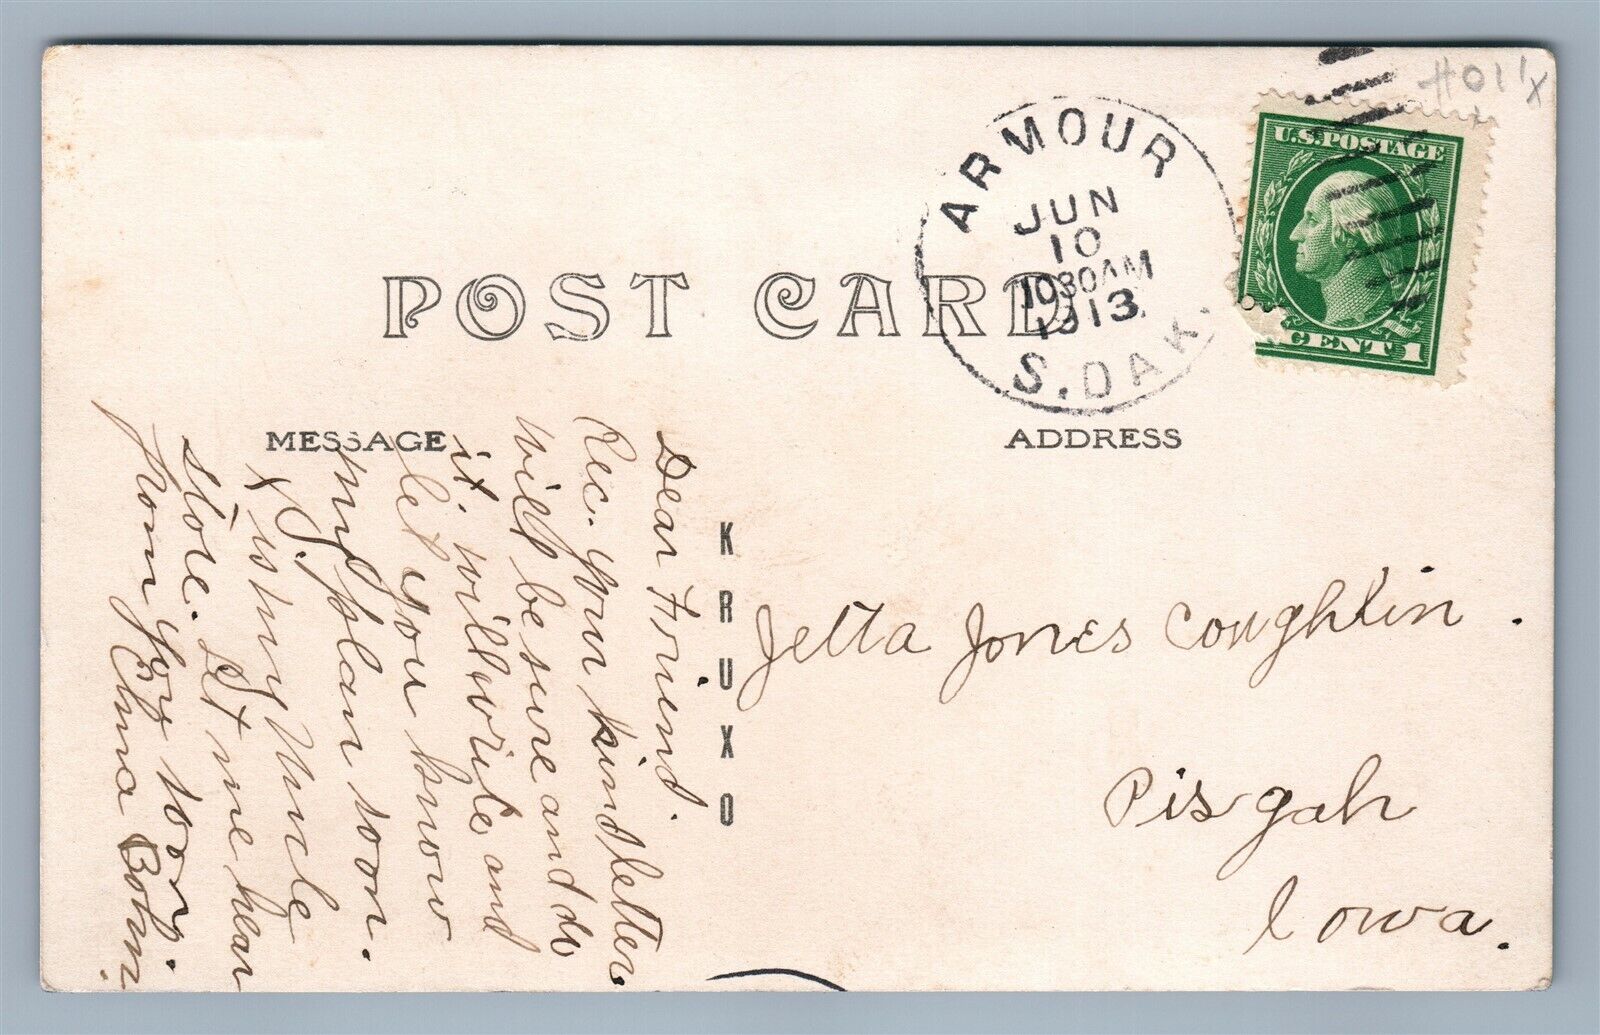 #011x
U.S.POSTAGE
CENT 1
ARMOUR
JUN
10
1030AM
1913
S.DAK.
POST CARD
MESSAGE
ADDRESS
KRUXO
Dear Friend.
Rec. your kind letter
will be sure and do
it. will write and
let you know
my plan soon.
x is my Uncle
store. Let me hear
from you soon.
Elma Bohn.
Jetta Jones Coughlin.
Pisgah
Iowa.